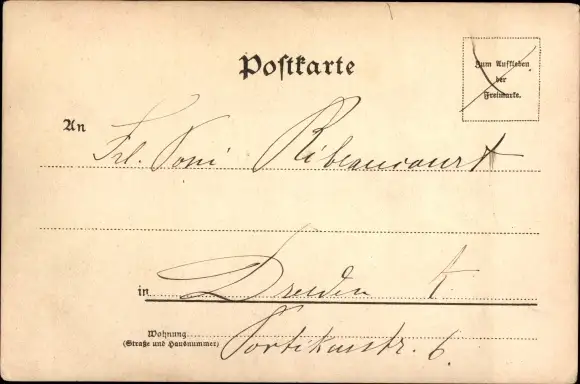 Postkarte
Zum Aufkleben
der
Freimarke.
An
Frl. Toni
in Dresden A.
Wohnung
(Straße und Hausnummer) 6.